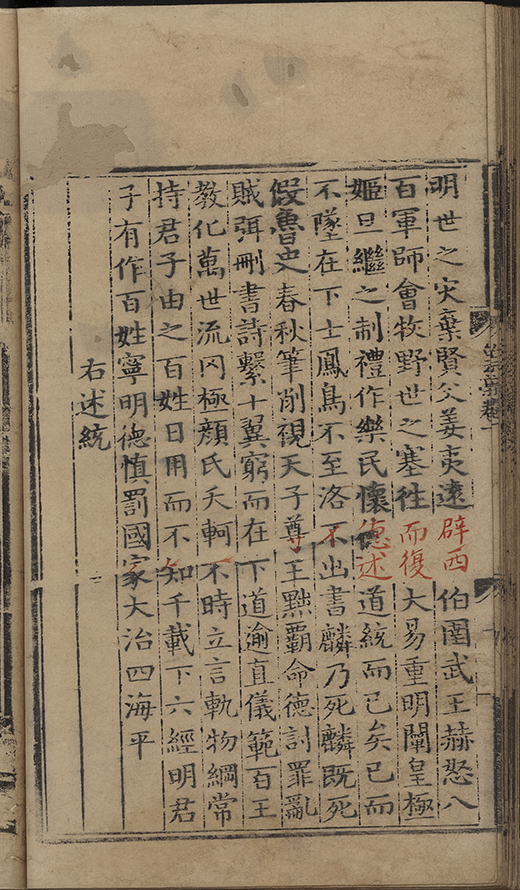 明世之灾棄賢父姜夷遠辟西伯圉武王赫怒八
百軍師會牧野世之塞徃而復大易重明闡皇極
姬旦繼之制禮作樂民懷德述道統而已矣已而
不墜在下士鳳鳥不至洛不出書麟乃死麟既死
假魯史春秋筆削視天子尊王黜覇命德討罪亂
賊弭刪書詩繫十翼窮而在下道逾直儀範百王
教化萬世流罔極顔氏夭軻不時立言軌物綱常
持君子由之百姓日用而不知千載下六經明君
子有作百姓寧明德慎罰國家大治四海平
右述統